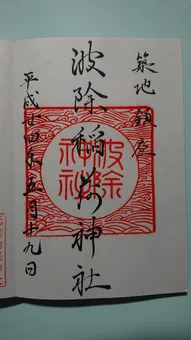 築地 鎮座
波除稲荷神社
波除
神社
平成廿四年五月十九日